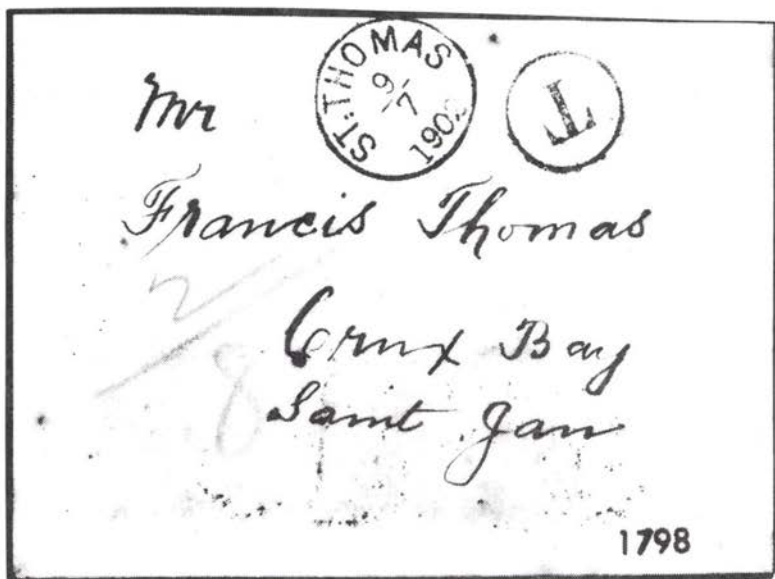 ST: THOMAS
9/7
1902
T
Mr
Francis Thomas
Crux Bay
Saint Jan
2/8
1798